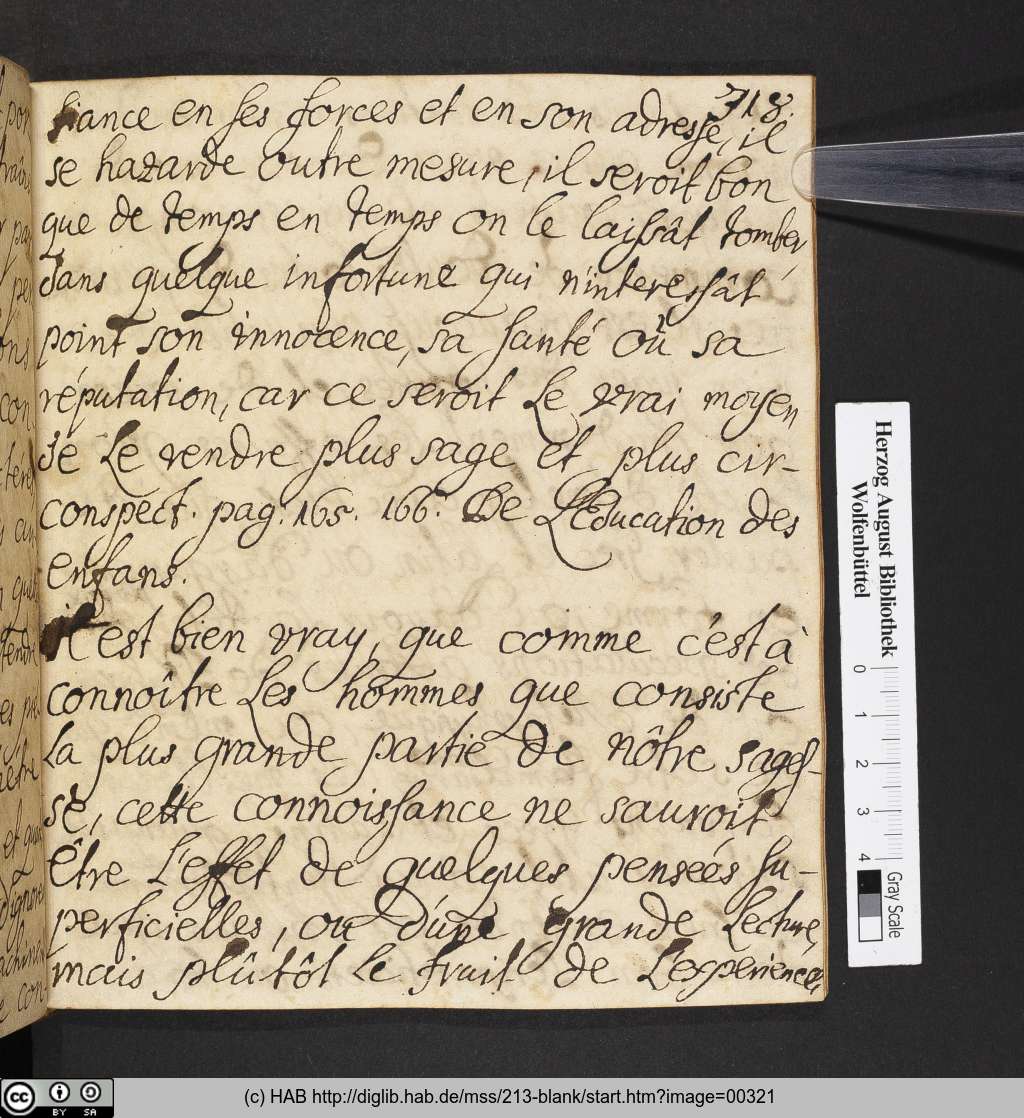 318.
fiance en ses forces et en son adresse, il
se hazarde outre mesure, il seroit bon
que de temps en temps on le laissât tomber
dans quelque infortune qui n'interessât
point son innocence, sa santé où sa
réputation, car ce seroit le vrai moyen
de le rendre plus sage et plus cir-
conspect. pag. 165. 166. De L'Education des
enfans.
il est bien vray, que comme c'est à
connoître les hommes que consiste
la plus grande partie de nôtre sages-
se, cette connoissance ne sauroit
être l'effet de quelques pensées su-
perficielles, ou d'une grande lecture,
mais plûtôt le fruit de l'experience
Herzog August Bibliothek
Wolfenbüttel
0 1 2 3 4
Gray Scale
cc BY SA
(c) HAB http://diglib.hab.de/mss/213-blank/start.htm?image=00321